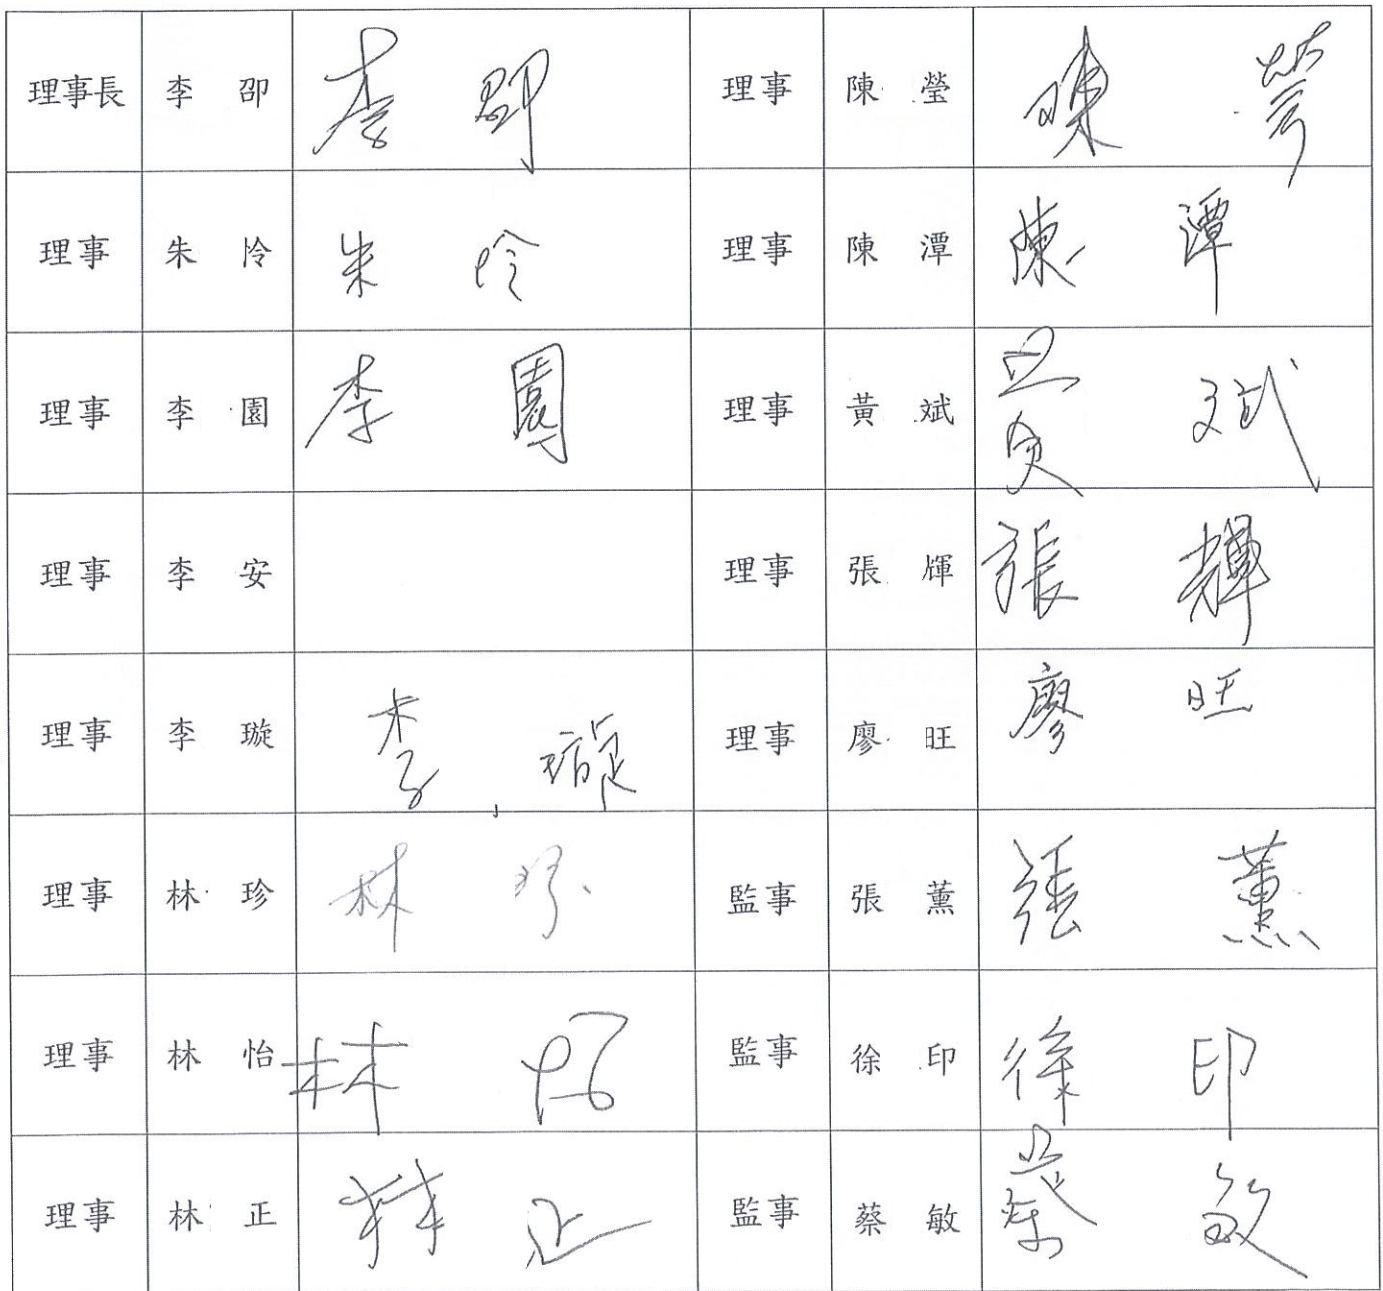 理事長 李 卲 李 卲 理事 陳 瑩 陳 瑩
理事 朱 怜 朱 怜 理事 陳 潭 陳 潭
理事 李 園 李 園 理事 黃 斌 黃 斌
理事 李 安 理事 張 輝 張 輝
理事 李 璇 李 璇 理事 廖 旺 廖 旺
理事 林 珍 林 珍 監事 張 薰 張 薰
理事 林 怡 林 怡 監事 徐 印 徐 印
理事 林 正 林 正 監事 蔡 敏 蔡 敏